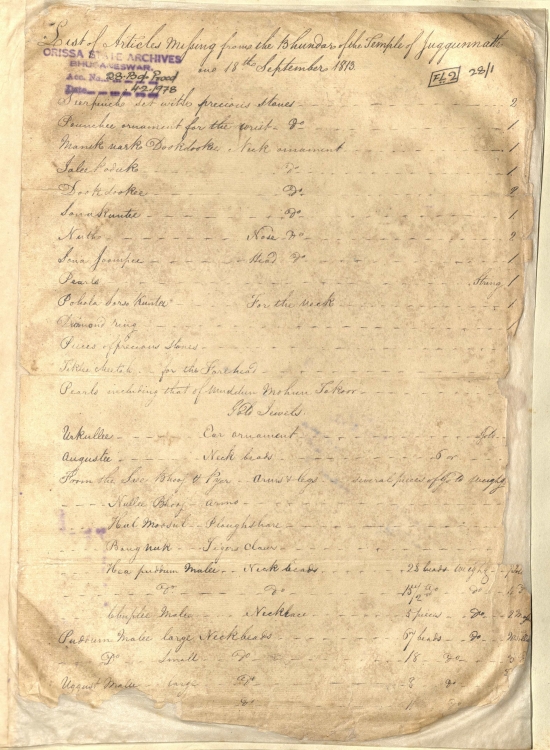 List of Articles Missing from the Bhundar of the Temple of Juggunnath
on 18th September 1813.
ORISSA STATE ARCHIVES
BHUBANESWAR.
Acc. No. 28-Bd Prood
Date 4-2-1978
FL2 28/1
Surpinche set with precious stones 2
Pounchee ornament for the wrist - Do 1
Manik nark Dookdookee Neck ornament 1
Jalee Podick 1
Dookdookee Do 2
Sona Kuntee Do 1
Nutho Nose Do 2
Sona Joompee Head Do 1
Pearls Strung 1
Pohola dora Kunta For the neck 1
Diamond ring 1
Pieces of precious stones
for the Forehead
Pearls including that of Muddun Mohun Takoor
Gold Jewels
Urkullee Ear ornament
Augustee Neck beads 6 or
From the Sree Bhooj & Pyer - arms & legs several pieces of Gold weighg
Nullee Bhooj - arms
Hul Moosul - Ploughshare
Baug nuk - Tigers Claws
Hea puddum Malee - Neck beads 23 beads weighg
Do Do 15 Do
Chuplee Malee Necklace 5 pieces Do
Puddum Malee large Neckbeads 67 beads Do
Do Small Do 18 Do
Uggust Malee large Do 3 Do
Do